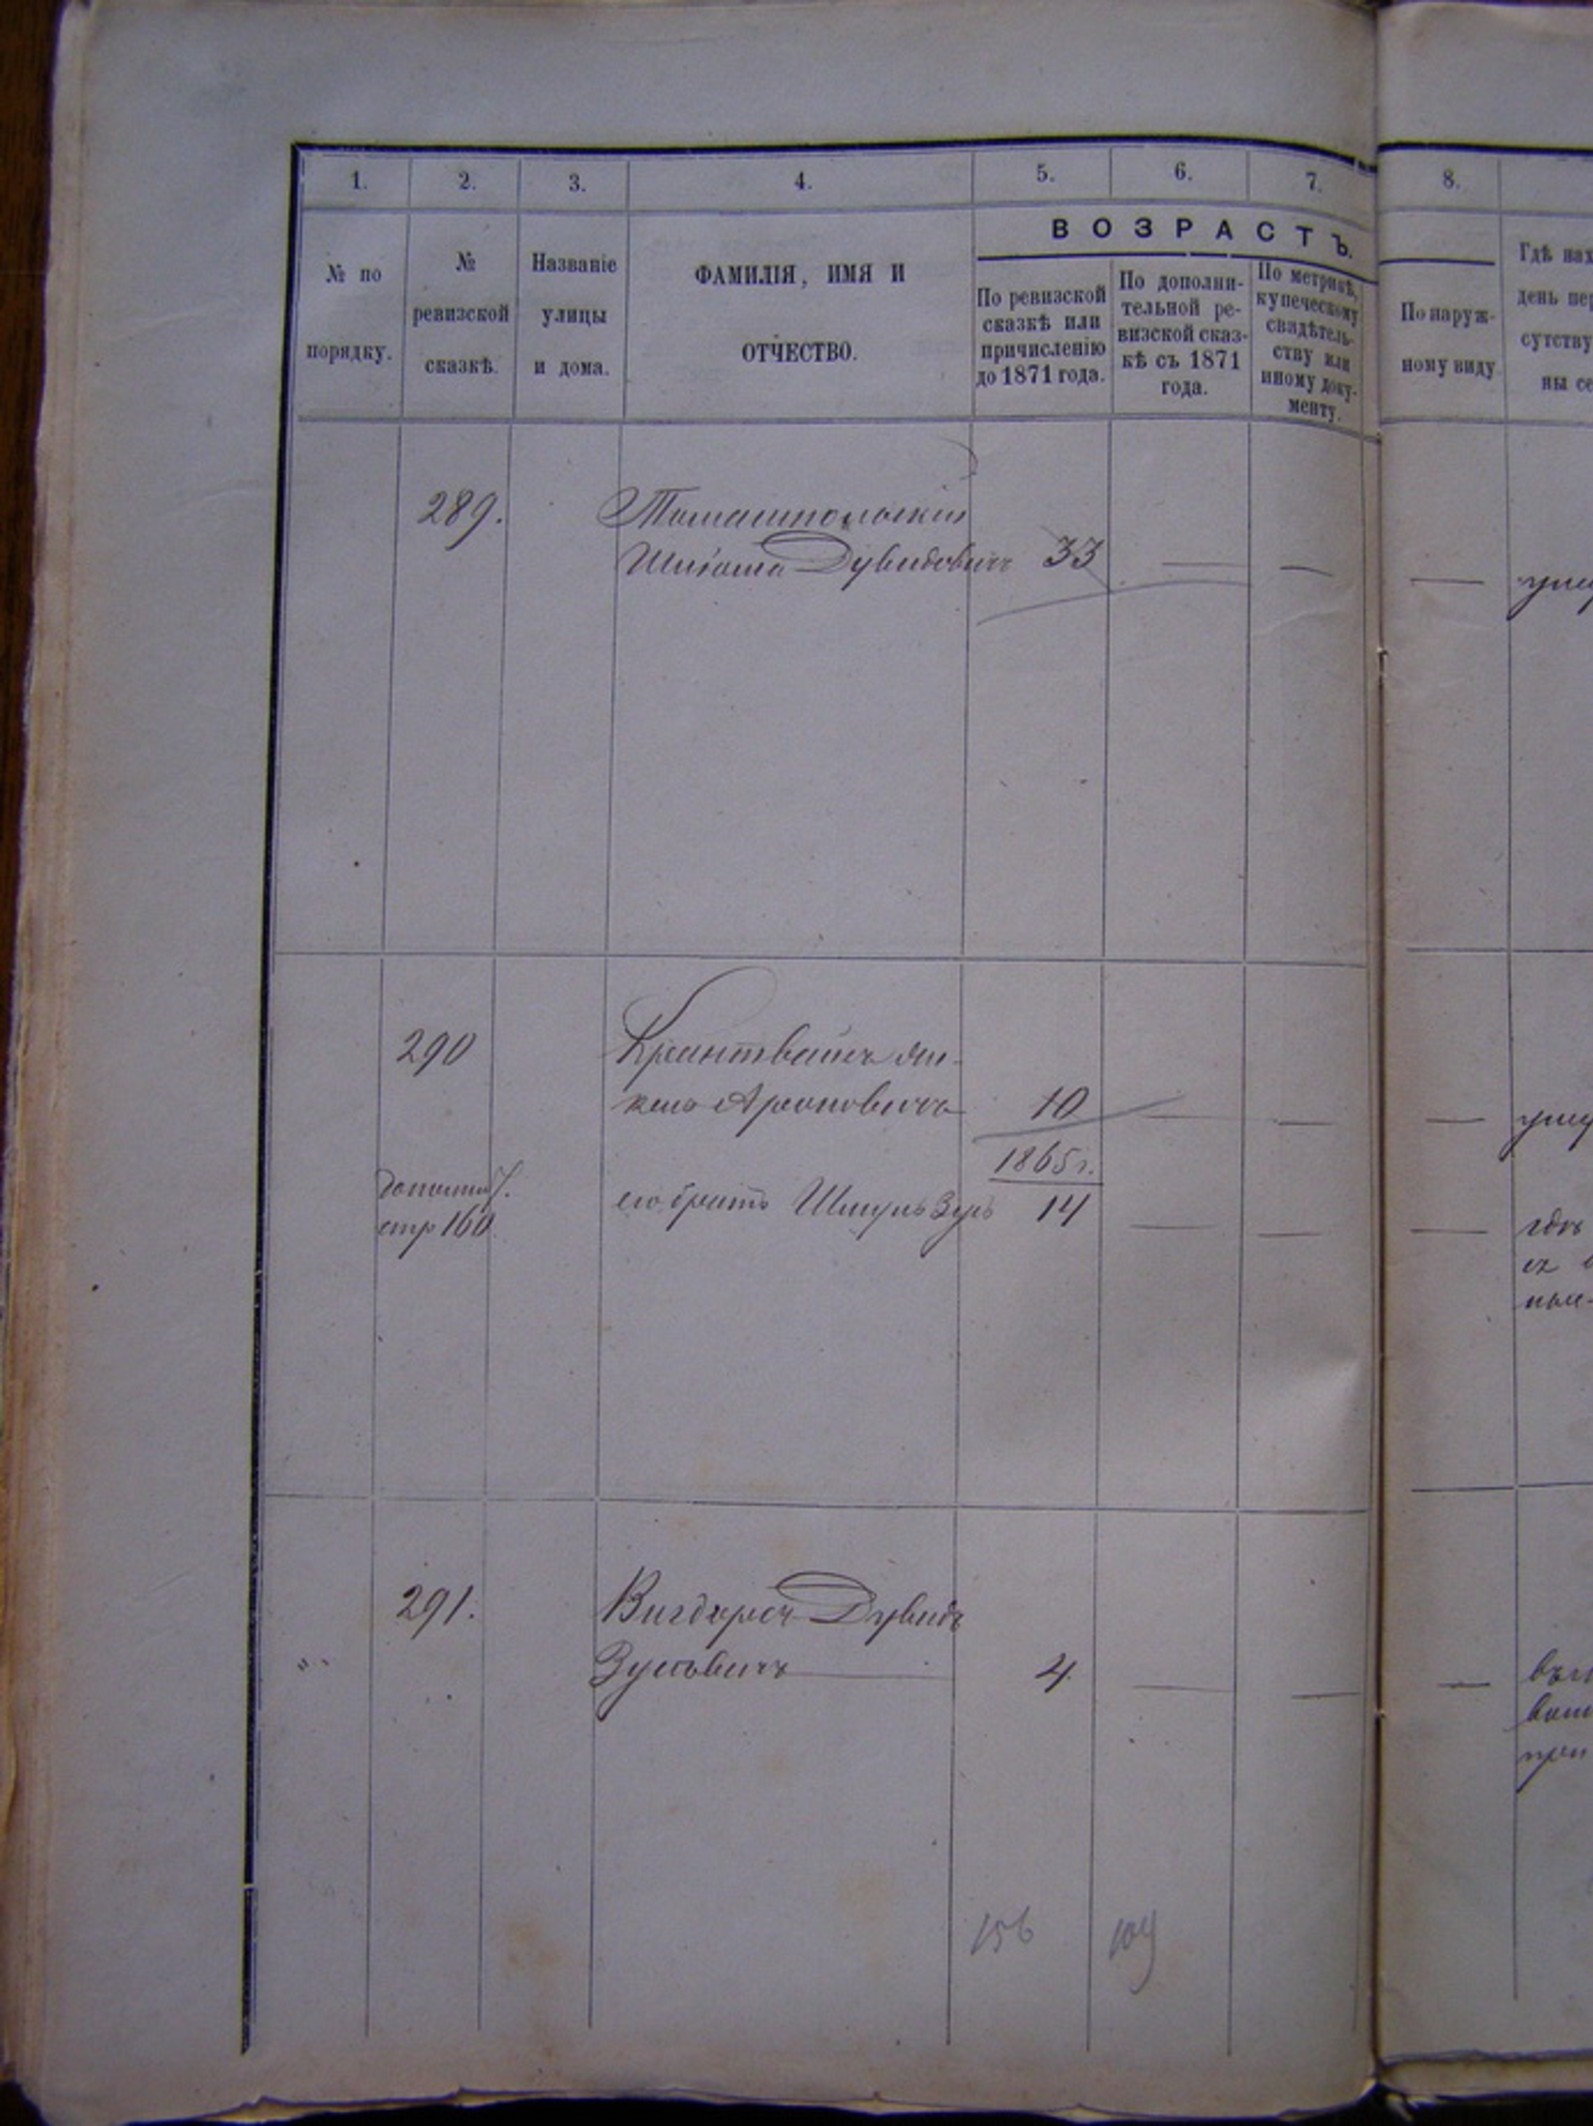 1.
2.
3.
4.
5.
6.
7.
8.
ВОЗРАСТЪ.
№ по
порядку.
№
ревизской
сказкѣ.
Названіе
улицы
и дома.
ФАМИЛІЯ, ИМЯ И
ОТЧЕСТВО.
По ревизской
сказкѣ или
причисленію
до 1871 года.
По дополни-
тельной ре-
визской сказ-
кѣ съ 1871
года.
По метрикѣ,
купеческому
свидѣтель-
ству или
иному доку-
менту.
По наруж-
ному виду
Гдѣ нах
день пер
сутству
ны се
289.
Томашпольскій
Дувидовичъ 33 — —
— уме
290
Крантвайнъ Ян-
кель Ароновичъ 10 — —
— уме
1865 г.
стр 160
его братъ Шмуль Зусь 14 — —
— гдѣ
съ
291.
Вигдорсъ Дувидъ
Зусьовичъ 4. — —
—
при
156 109